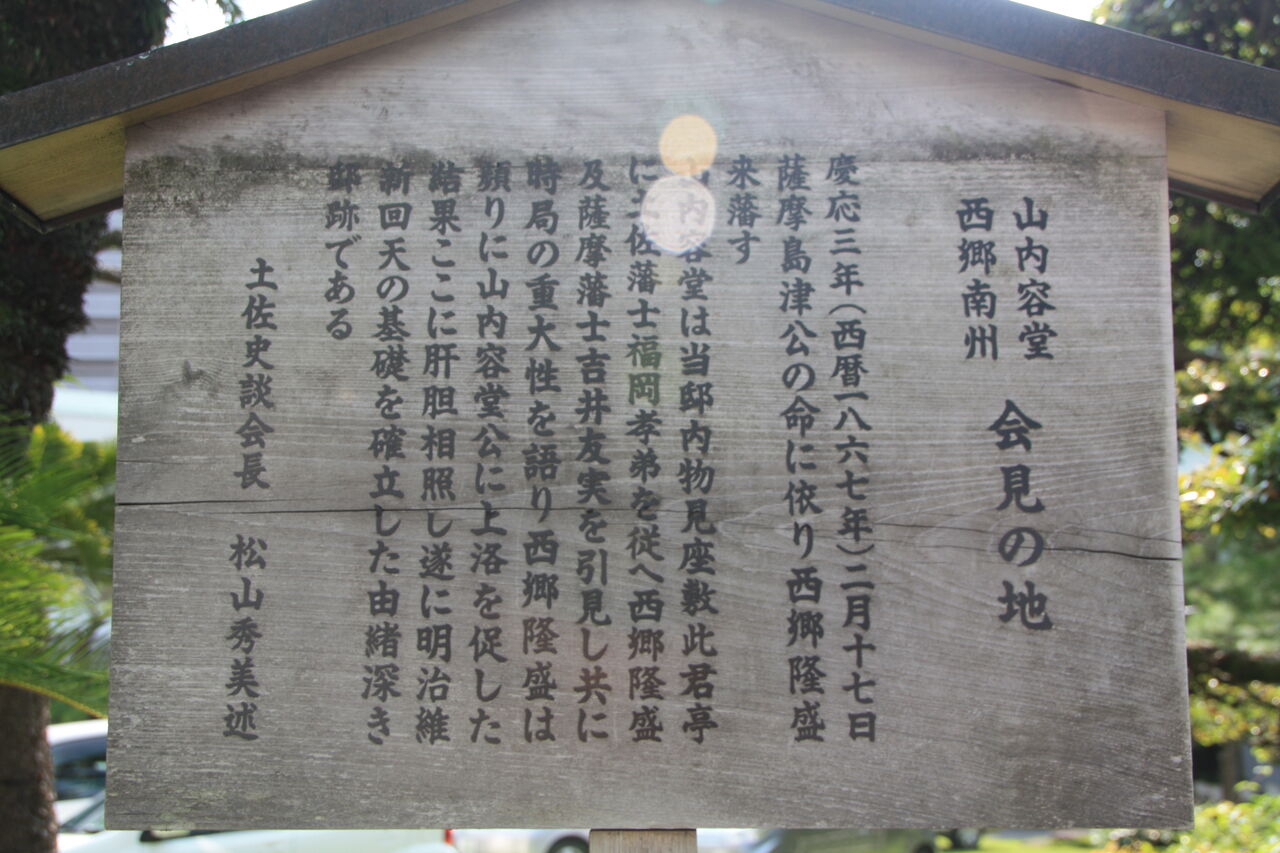 山内容堂
西郷南州
会見の地
慶応三年(西暦一八六七年)二月十七日
薩摩島津公の命に依り西郷隆盛
来藩す
山内容堂は当邸内物見座敷此君亭
に土佐藩士福岡孝弟を従へ西郷隆盛
及薩摩藩士吉井友実を引見し共に
時局の重大性を語り西郷隆盛は
頻りに山内容堂公に上洛を促した
結果ここに肝胆相照し遂に明治維
新回天の基礎を確立した由緒深き
邸跡である
土佐史談会長 松山秀美述